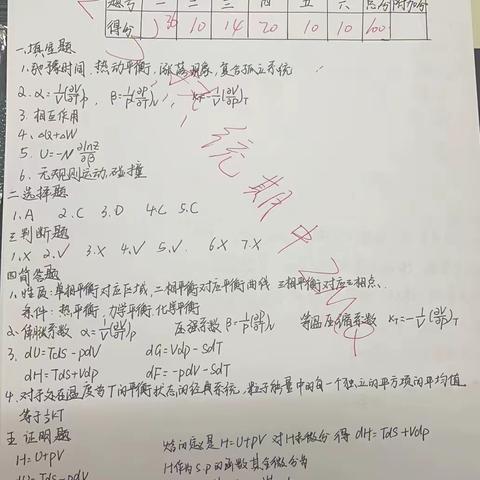 题号 一 二 三 四 五 六 总分 附加分
得分 30 10 14 20 10 10 100
一.填空题
1.弛豫时间,热动平衡,涨落现象,复合孤立系统
2.α=1/V(∂V/∂T)p , β=1/P(∂P/∂T)V , KT=-1/V(∂V/∂P)T
3.相互作用
4.ΔQ+ΔW
5.U=-N ∂lnZ/∂β
6.无规则运动,碰撞
二.选择题
1.A 2.C 3.D 4.C 5.C
三.判断题
1.X 2.V 3.X 4.V 5.V. 6.X 7.X
四.简答题
1.性质:单相平衡对应区域,二相平衡对应平衡曲线 三相平衡对应三相点.
条件:热平衡,力学平衡,化学平衡
2.体胀系数 α=1/V(∂V/∂T)p 压强系数 β=1/P(∂P/∂T)V 等温压缩系数 KT=-1/V(∂V/∂P)T
3.dU=Tds-pdV dG=Vdp-SdT
dH=Tds+Vdp dF=-pdV-SdT
4.对于处在温度为T的平衡状态的经典系统,粒子能量中的每一个独立的平方项的平均值
等于½KT
五.证明题
H=U+pV 焓的定义是H=U+PV 对H求微分 得 dH=Tds+Vdp
H作为S.p的函数其全微分为
dU=Tds-pdV
统期中